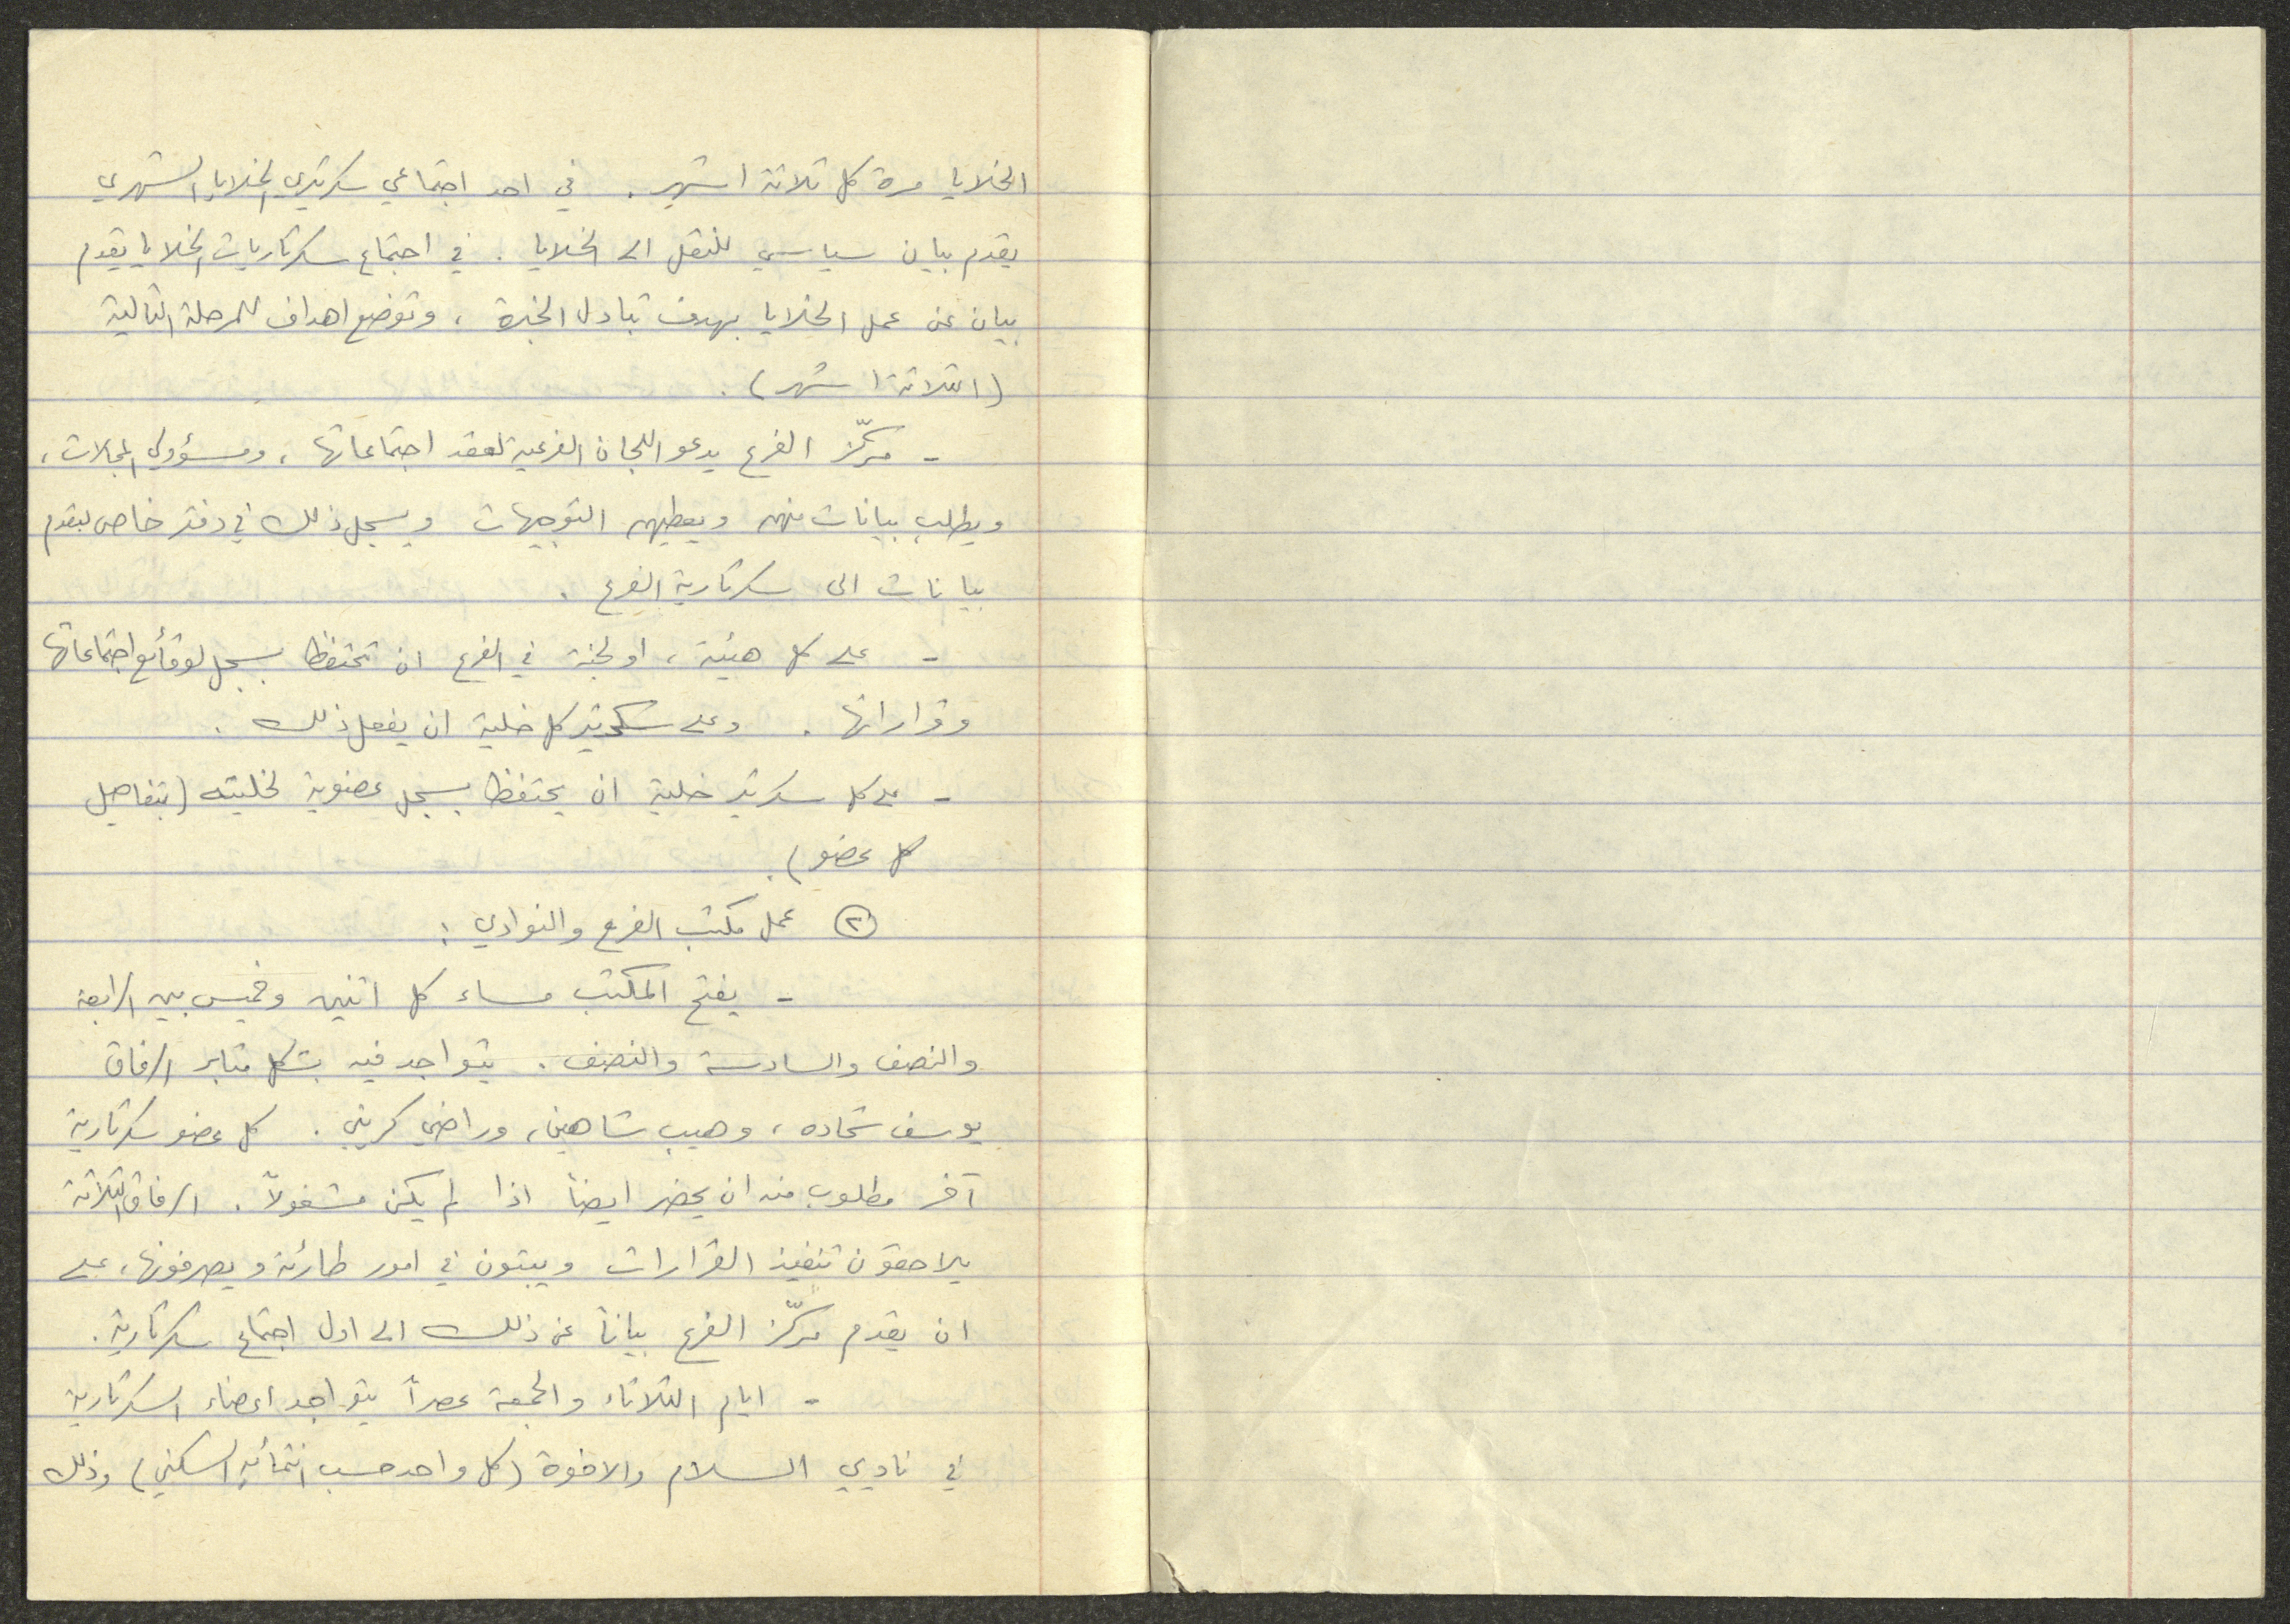 الخلايا مرة كل ثلاثة اشهر. في احد اجتماعي سكرتيري الخلايا الشهري
يقدم بيان سياسي للنقل الى الخلايا. في اجتماع سكرتاريات الخلايا يقدم
بيان عن عمل الخلايا بهدف تبادل الخبرة، وتوضع اهداف للمرحلة التالية
(الثلاثة اشهر).
- مركّز الفرع يدعو اللجان الفرعية لعقد اجتماعاتها، ومسؤولي المجالات،
ويطلب بيانات منهم ويعطيهم التوجيهات ويسجل ذلك في دفتر خاص ليقدم
بيانات الى سكرتارية الفرع.
- على كل هيئة، او لجنة في الفرع ان تحتفظ بسجل لوقائع اجتماعاتها
وقراراتها. وعلى سكرتير كل خلية ان يفعل ذلك.
- على كل سكرتير خلية ان يحتفظ بسجل عضوية لخليته (بتفاصيل
كل عضو).
(٢) عمل مكتب الفرع والنوادي:
- يفتح المكتب مساء كل اثنين وخميس بين الرابعة
والنصف والسادسة والنصف. يتواجد فيه بشكل مثابر الرفاق
يوسف شحاده، وهيب شاهين، وراضي كريني. كل عضو سكرتارية
آخر مطلوب منه ان يحضر ايضاً اذا لم يكن مشغولاً. الرفاق الثلاثة
يلاحقون تنفيذ القرارات ويبتون في امور طارئة ويصرفونها، على
ان يقدم مركّز الفرع بياناً عن ذلك الى اول اجتماع سكرتارية.
- ايام الثلاثاء والجمعة عصراً يتواجد اعضاء السكرتارية
في ناديي السلام والاخوة (كل واحد حسب انتمائه السكني) وذلك